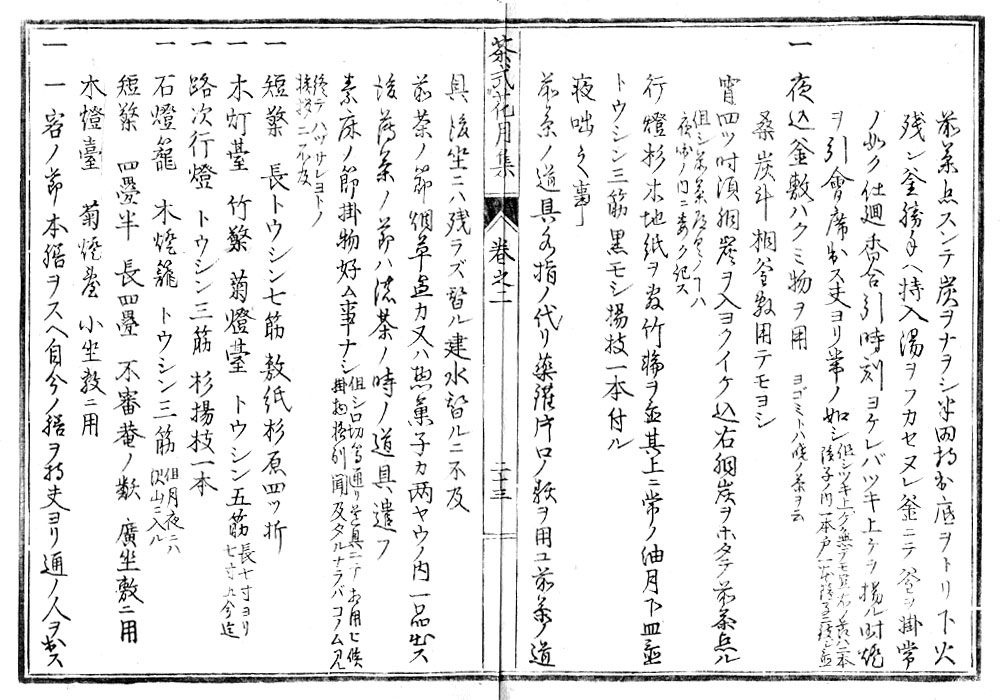 前茶点スンテ炭ヲナヲシ半田持出底ヲトリ下火
残シ釜勝手ヘ持入湯ヲフカセヌレ釜ニテ釜ヲ掛常
ノ如ク仕廻香合引時刻ヨケレバツキ上ケヲ揚ル时燈
ヲ引會席出ス夫ヨリ常ノ如シ
一 夜込釜敷ハクミ物ヲ用 ヨゴミトハ暁ノ茶ヲ云
桑炭斗 桐釜敷用テモヨシ
宵四ツ时頃胴炭ヲ入ヨクイケ込右胴炭ヲホタテ前茶点ル
行燈杉木地紙ヲ敷竹輪ヲ置其上ニ常ノ油月下皿置
トウシン三筋黒モシ揚枝一本付ル
夜咄之事
前茶ノ道具水指ノ代リ薬鑵片口ノ類ヲ用ユ前茶ノ道
具後坐ニハ残ラズ替ル建水替ルニ不及
前茶ノ節烟草盆カ又ハ惣菓子カ両ヤウノ内一品出ス
後薄茶ノ節ハ濃茶ノ時ノ道具遣フ
素床ノ節掛物好ム事ナシ
一 短檠 長トウシン七筋敷紙杉原四ツ折
一 木灯臺 竹檠 菊燈臺 トウシン五筋 長七寸ヨリ七寸五分迄
一 路次行燈 トウシン三筋 杉揚枝一本
一 石燈籠 木燈籠 トウシン三筋 但月夜ニハ沢山ニ入ル
短檠 四疊半 長四疊 不審菴ノ類 廣坐敷ニ用
木燈臺 菊燈臺 小坐敷ニ用
一 一客ノ節本膳ヲスヘ自分ノ膳ヲ持夫ヨリ通ノ人ヲ出ス
茶式花月集 卷之二 二十三